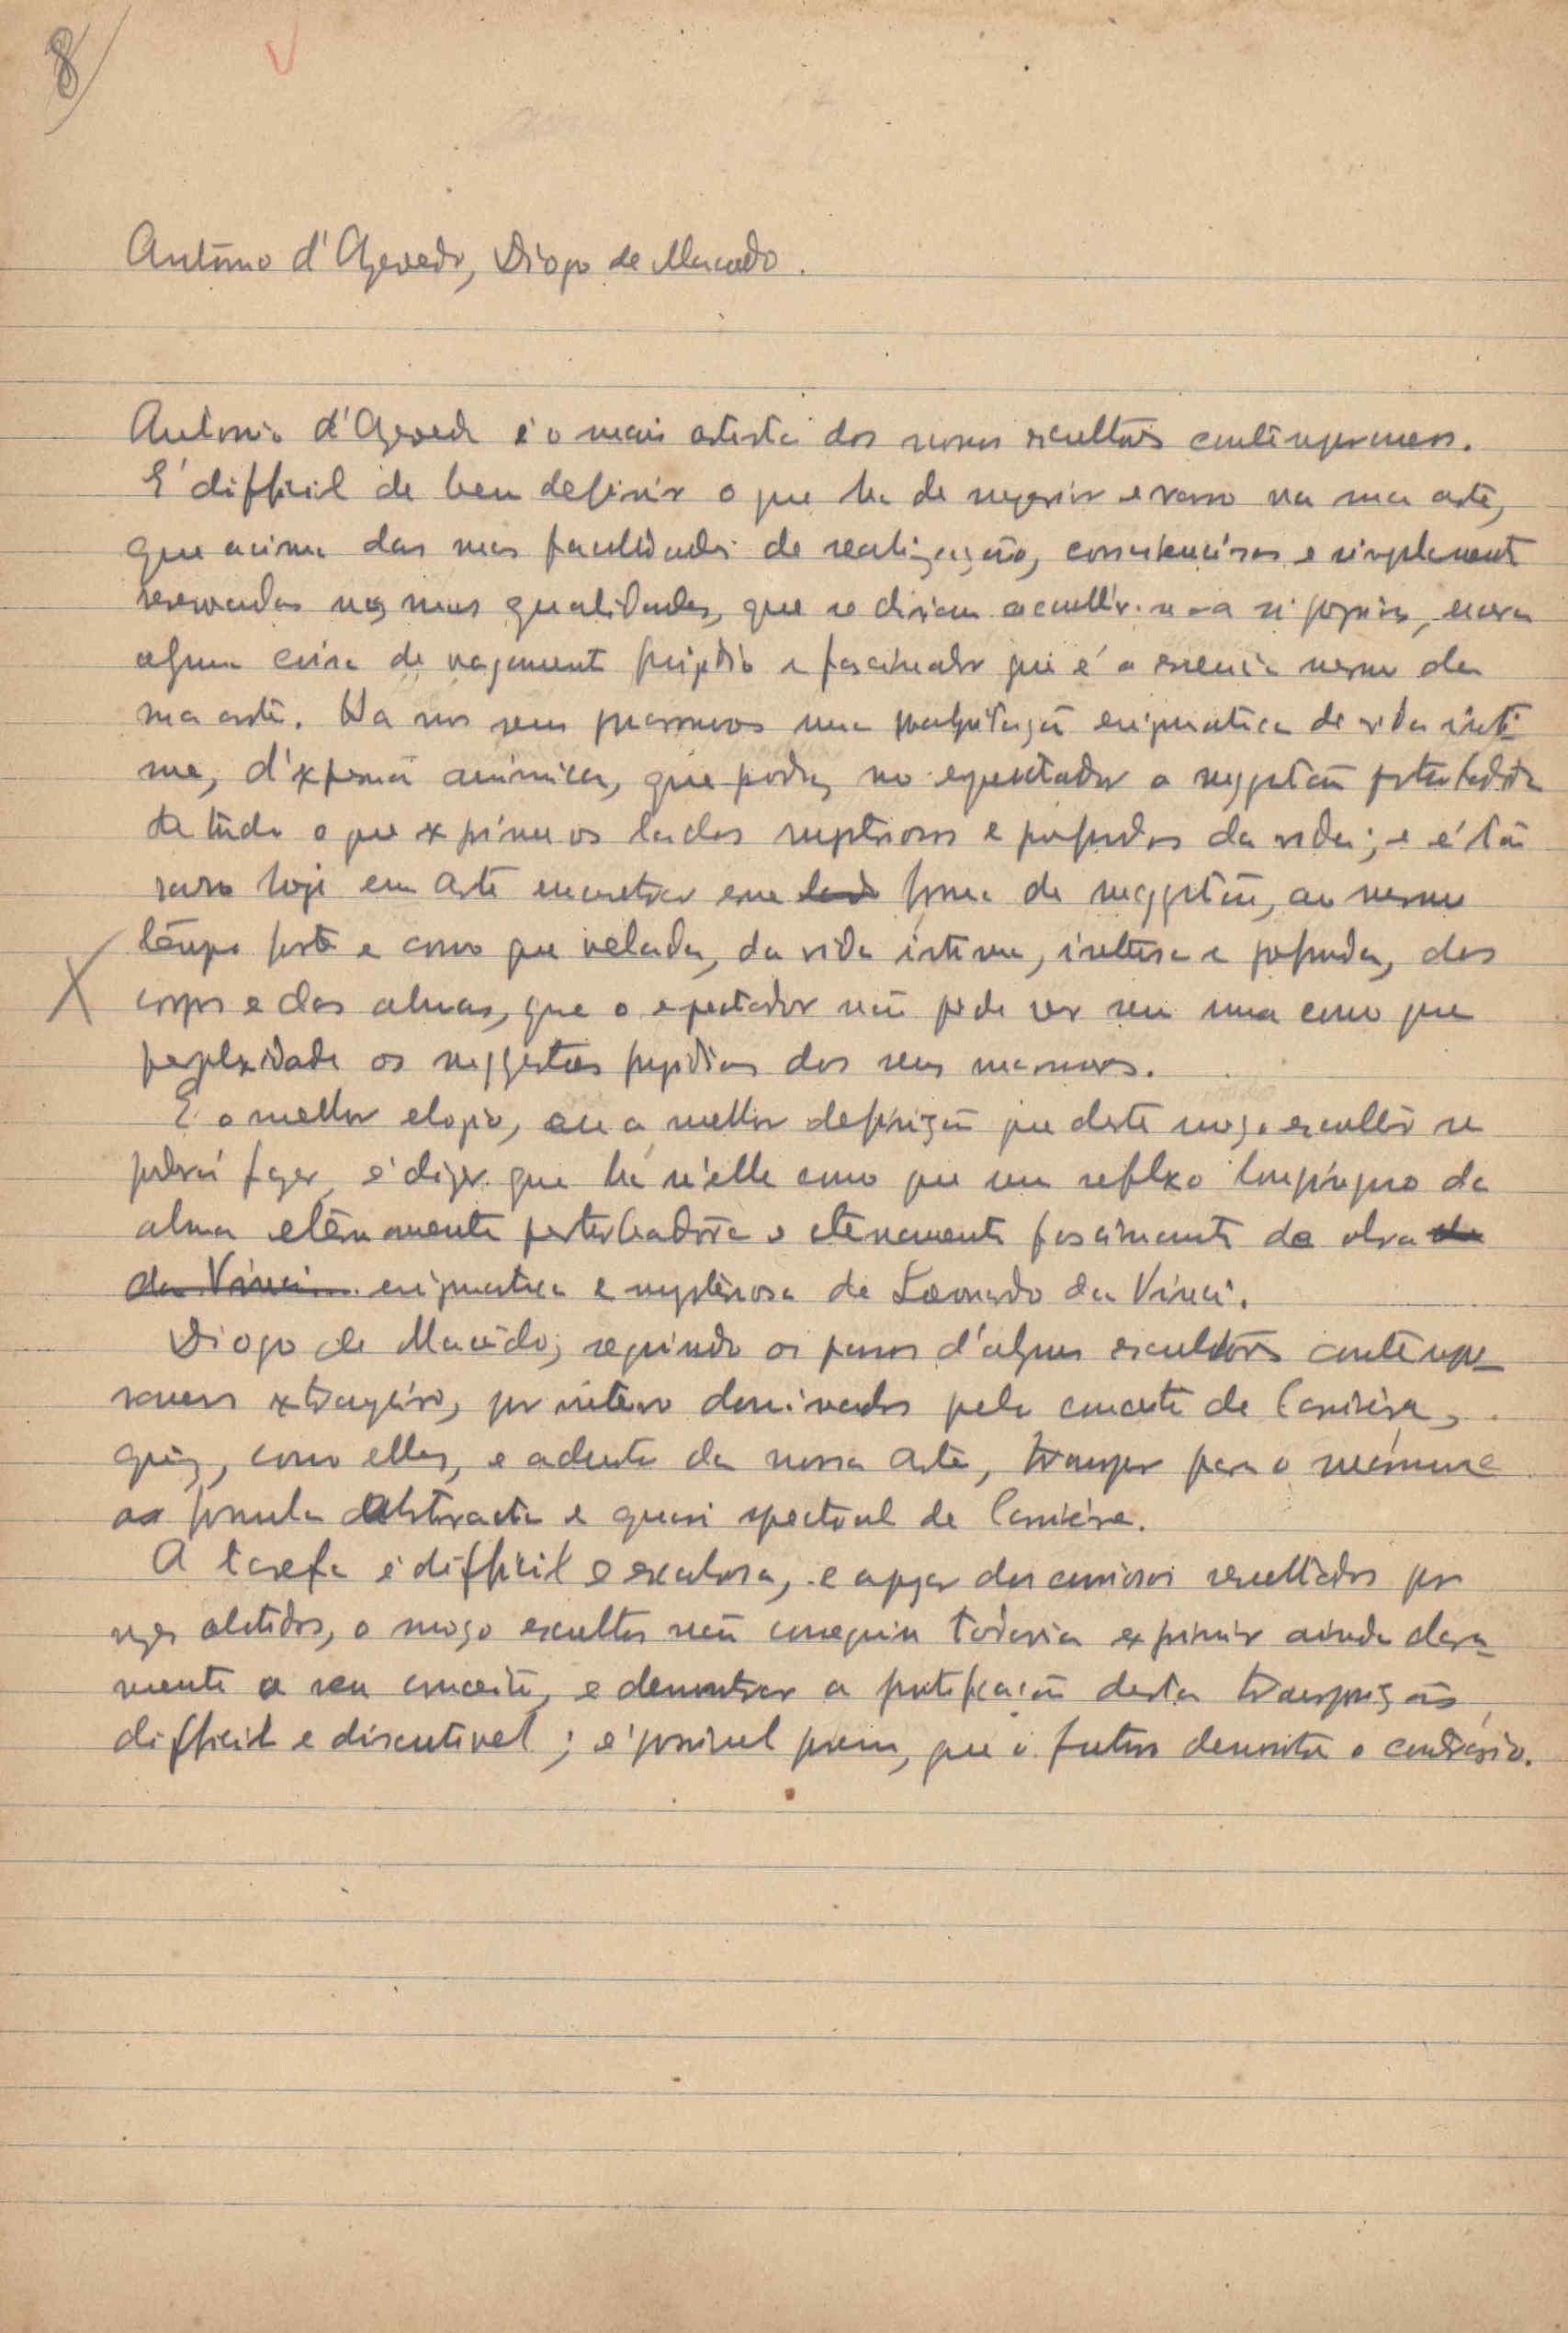 8
António d'Azevedo, Diogo de Macedo.
António d'Azevedo é o mais artista dos nossos escultores contemporaneos.
É difficil de bem definir o que ha de superior e raro na sua arte,
que acima das suas faculdades de realização, conscienciosas e simplesmente
reservadas nas suas qualidades, que se diriam occultar-se a si proprias,
alguma coisa de vagamente perfido e fascinador que é a essencia mesmo da
sua arte. Ha nos seus marmores uma palpitação enigmatica de vida inti-
ma, d'expressão animica, que produz no espectador a suggestão perturbadora
de tudo o que exprime os lados mysteriosos e profundos da vida; e é tão
raro hoje em arte encontrar essa forma de suggestão, ao mesmo
tempo forte e como que velada, da vida intima, intensa e profunda, dos
corpos e das almas, que o espectador não pode ver sem uma como que
perplexidade as suggestões perfidas dos seus marmores.
E o melhor elogio, ou a melhor definição que deste moço escultor se
poderá fazer, é dizer que ha n'elle como que um reflexo longinquo da
alma eternamente perturbadora e eternamente fascinante da obra da
da Vinci enigmatica e mysteriosa de Leonardo da Vinci.
Diogo de Macêdo, seguindo os passos d'alguns escultores contempo-
raneos extrangeiros, por inteiro dominados pelo conceito de Carrière,
quiz, como elles, e adentro da nossa arte, transpor para o marmore
a formula abstracta e quasi spectral de Carrière.
A tarefa é difficil e escabrosa, e apezar dos curiosos resultados por
vezes obtidos, o moço escultor não conseguiu todavia exprimir ainda clara-
mente o seu conceito, e demonstrar a justificação desta transposição
difficil e discutivel; é possivel porem, que o futuro demonstre o contrário.